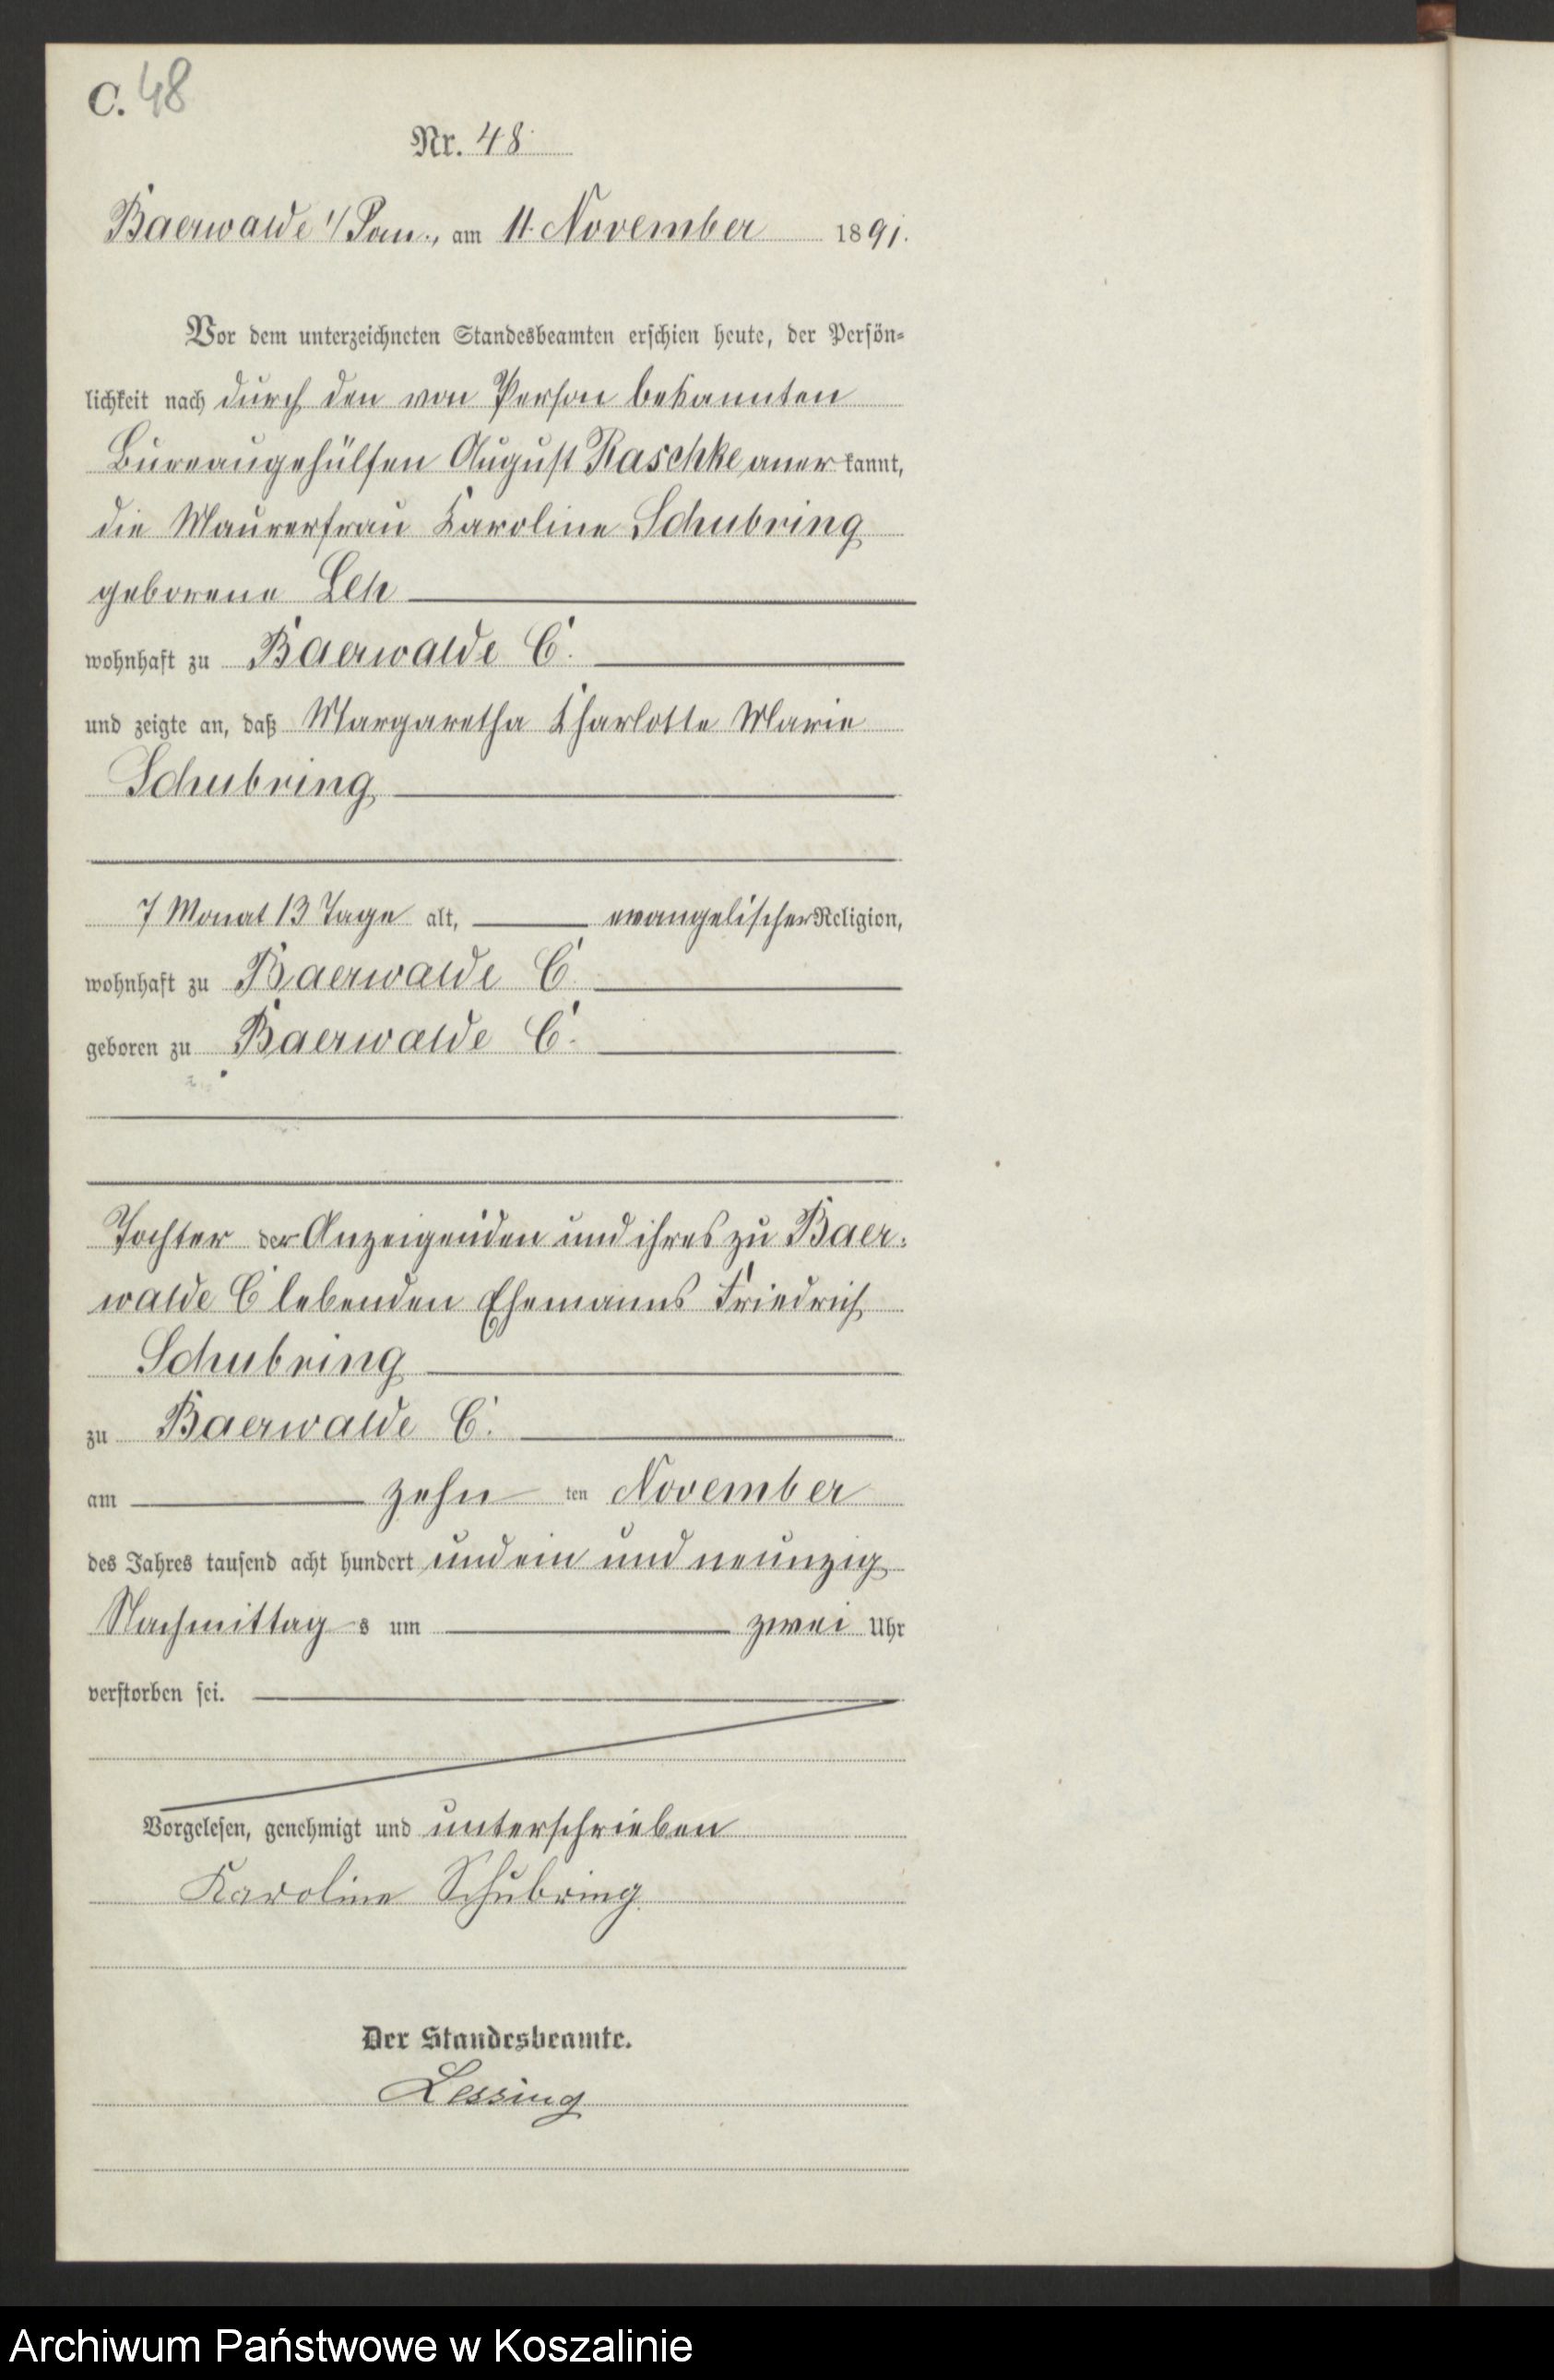 C. 48
Nr. 48
Baerwalde i/Pom., am 11. November 1891.
Vor dem unterzeichneten Standesbeamten erschien heute, der Persön-
lichkeit nach durch den von Person bekannten
Bureaugehülfen August Raschke anerkannt,
die Maurerfrau Karoline Schubring
geborene Leh
wohnhaft zu Baerwalde C.
und zeigte an, daß Margaretha Charlotte Marie
Schubring
7 Monat 13 Tage alt, evangelischer Religion,
wohnhaft zu Baerwalde C.
geboren zu Baerwalde C.
Tochter der Anzeigenden und ihres zu Baer-
walde C lebenden Ehemanns Friedrich
Schubring
zu Baerwalde C.
am zehn ten November
des Jahres tausend acht hundert und ein und neunzig
Nachmittags um zwei Uhr
verstorben sei.
Vorgelesen, genehmigt und unterschrieben
Karoline Schubring
Der Standesbeamte.
Lessing
Archiwum Państwowe w Koszalinie